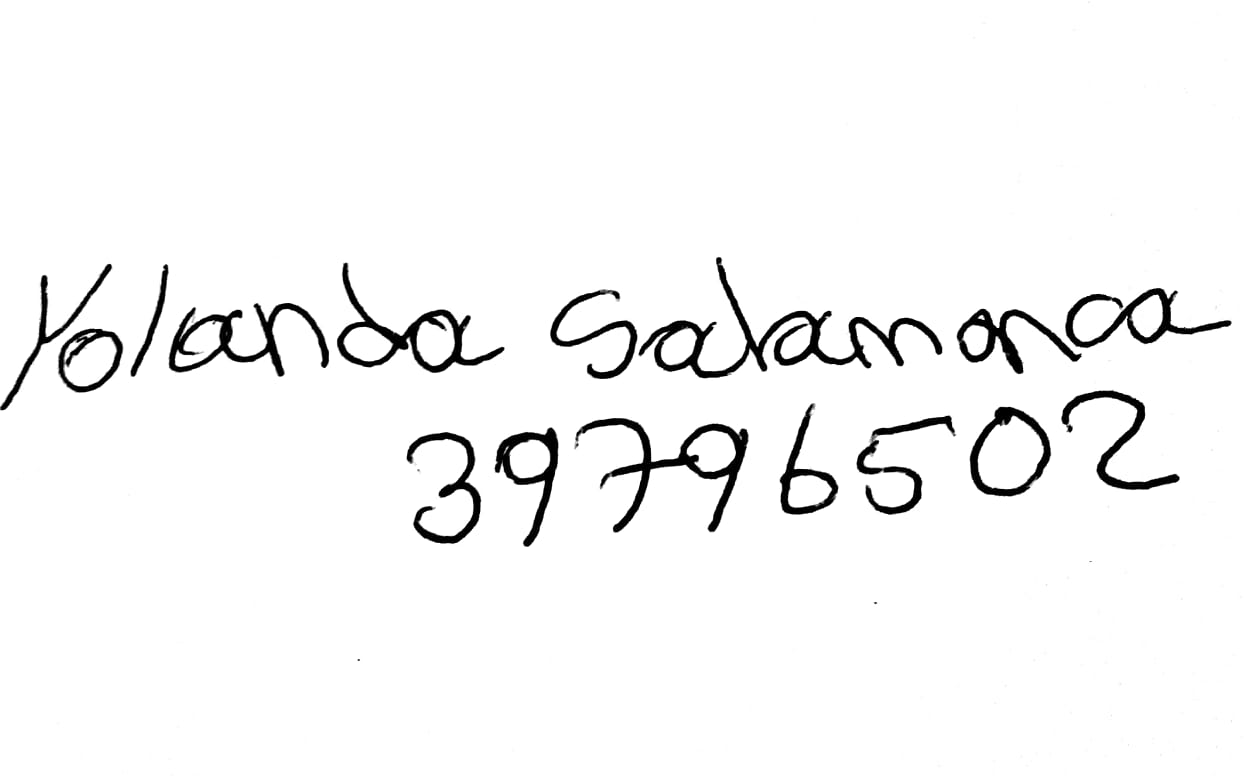 Yolanda Salamanca
39796502